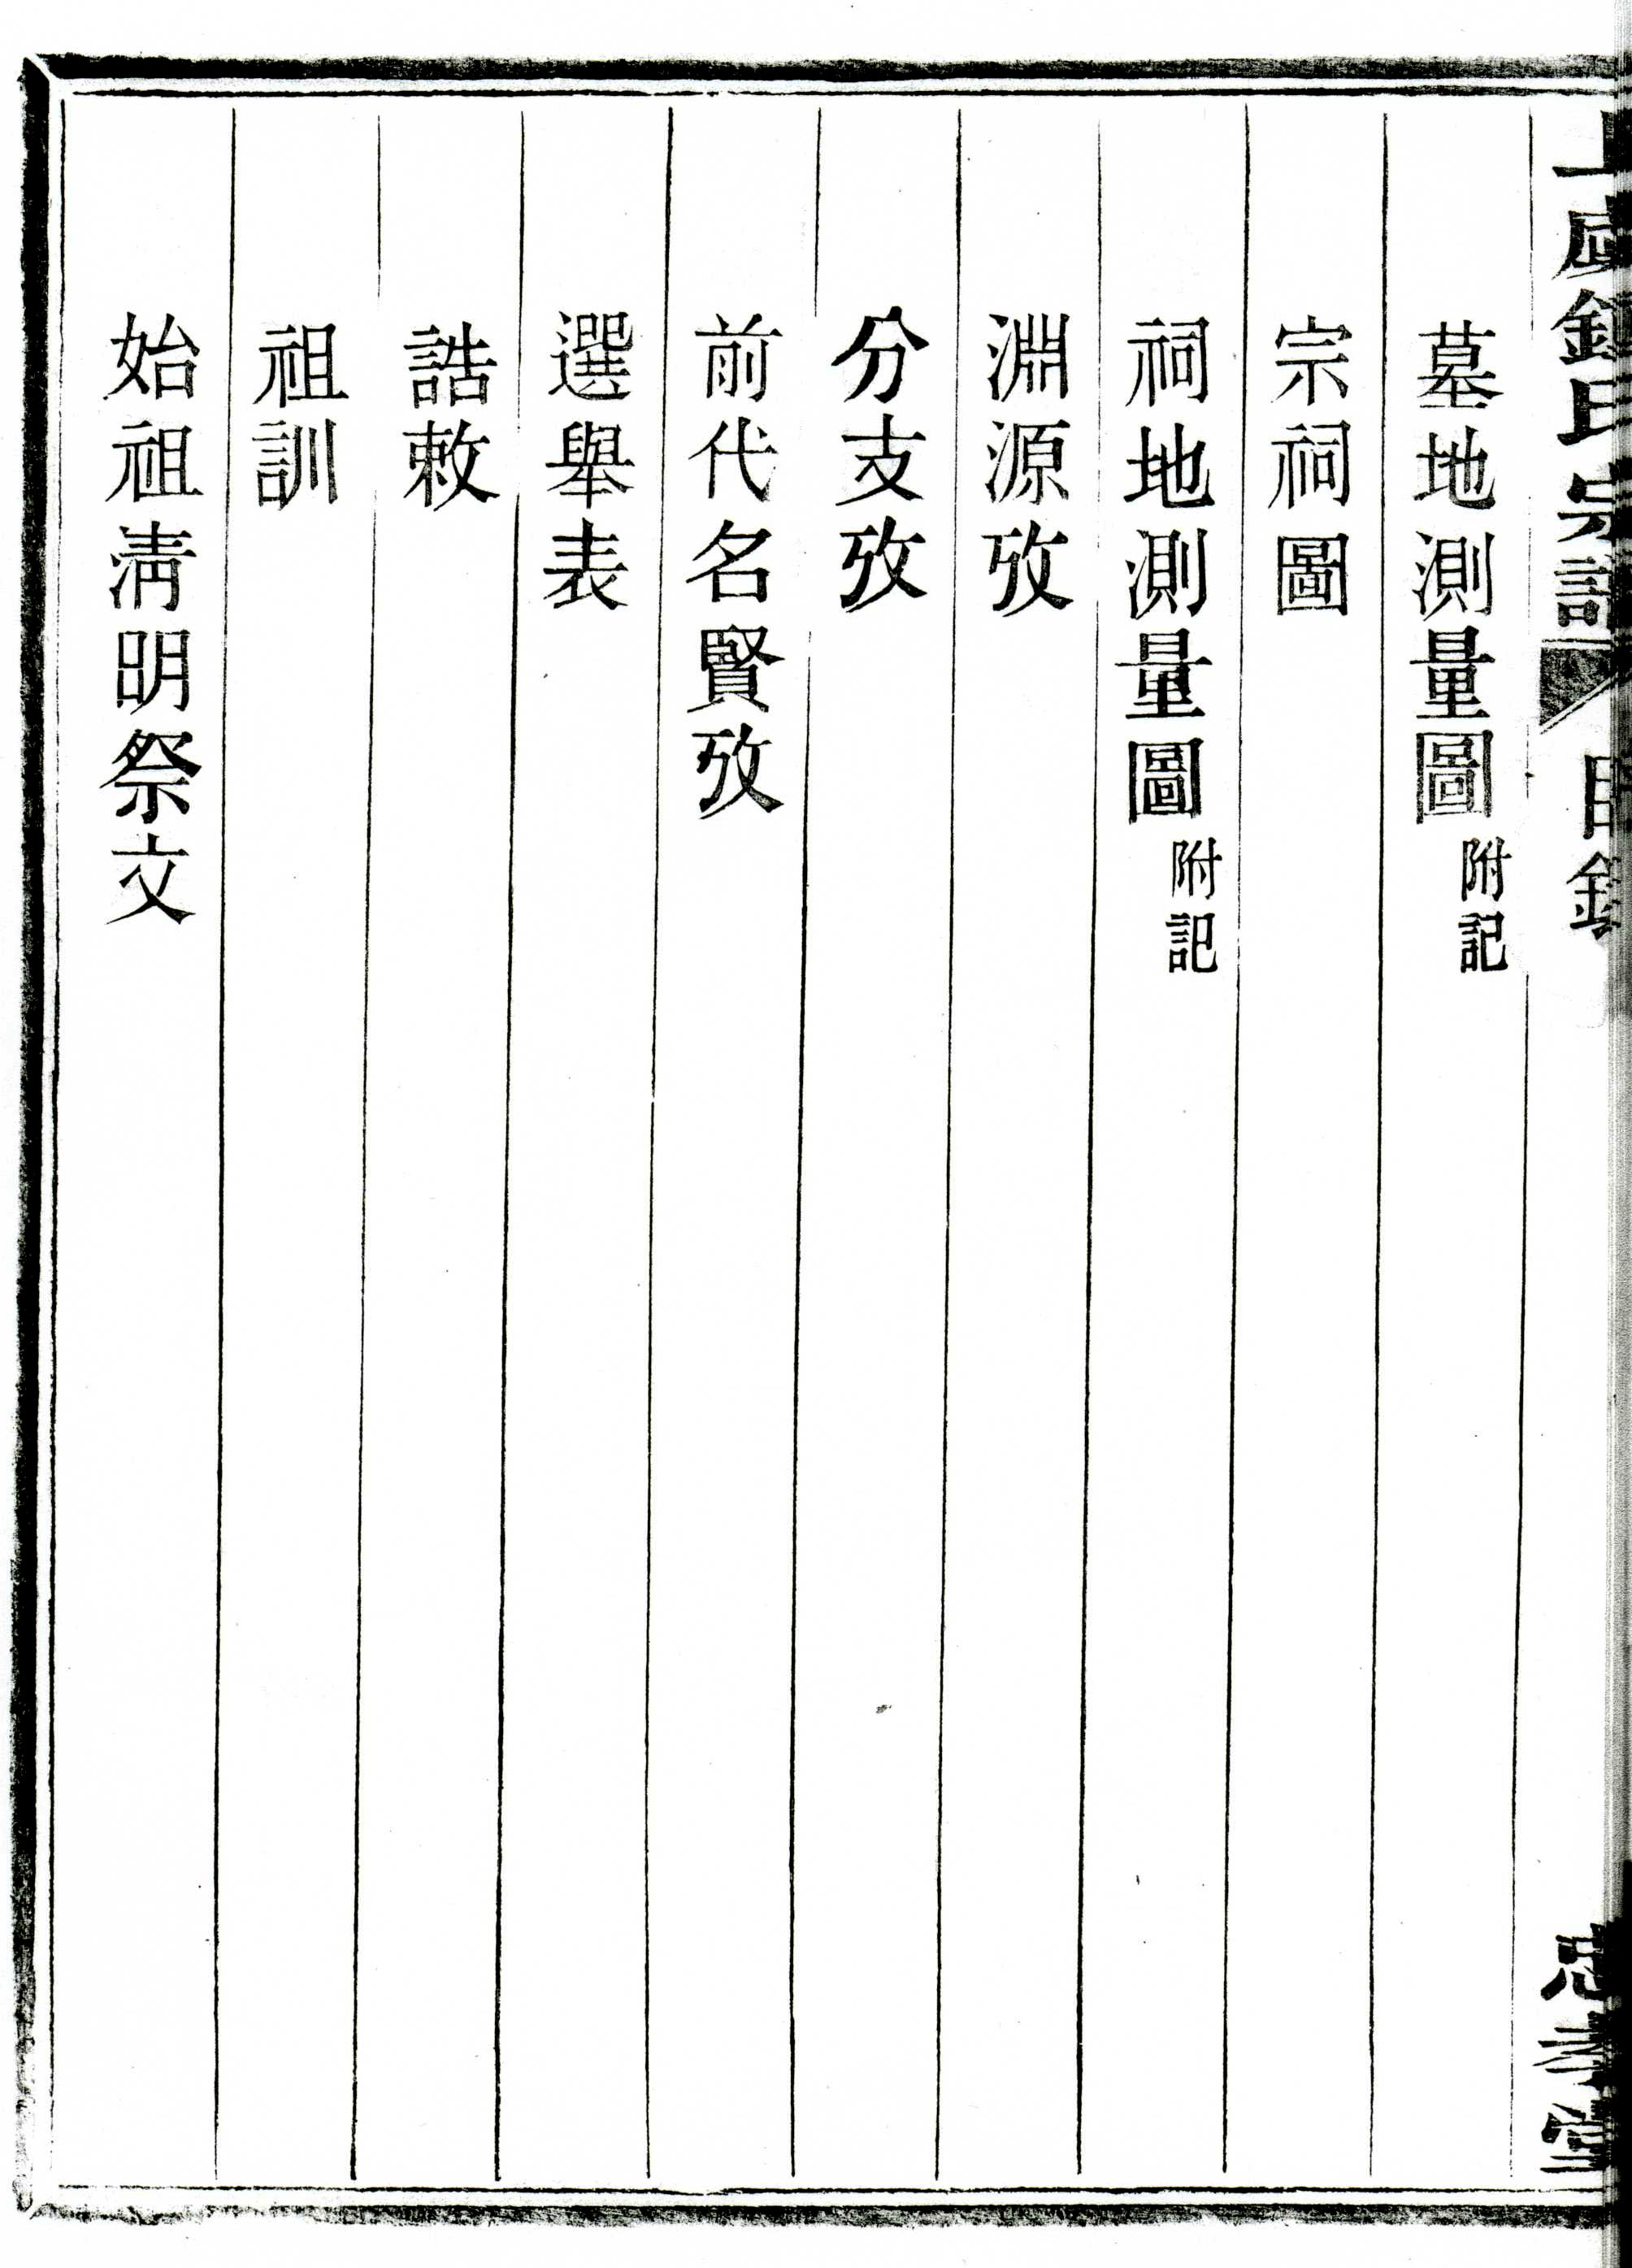 氏宗譜 目錄 忠孝堂
墓地測量圖 附記
宗祠圖
祠地測量圖 附記
淵源攷
分支攷
前代名賢攷
選舉表
誥敕
祖訓
始祖清明祭文